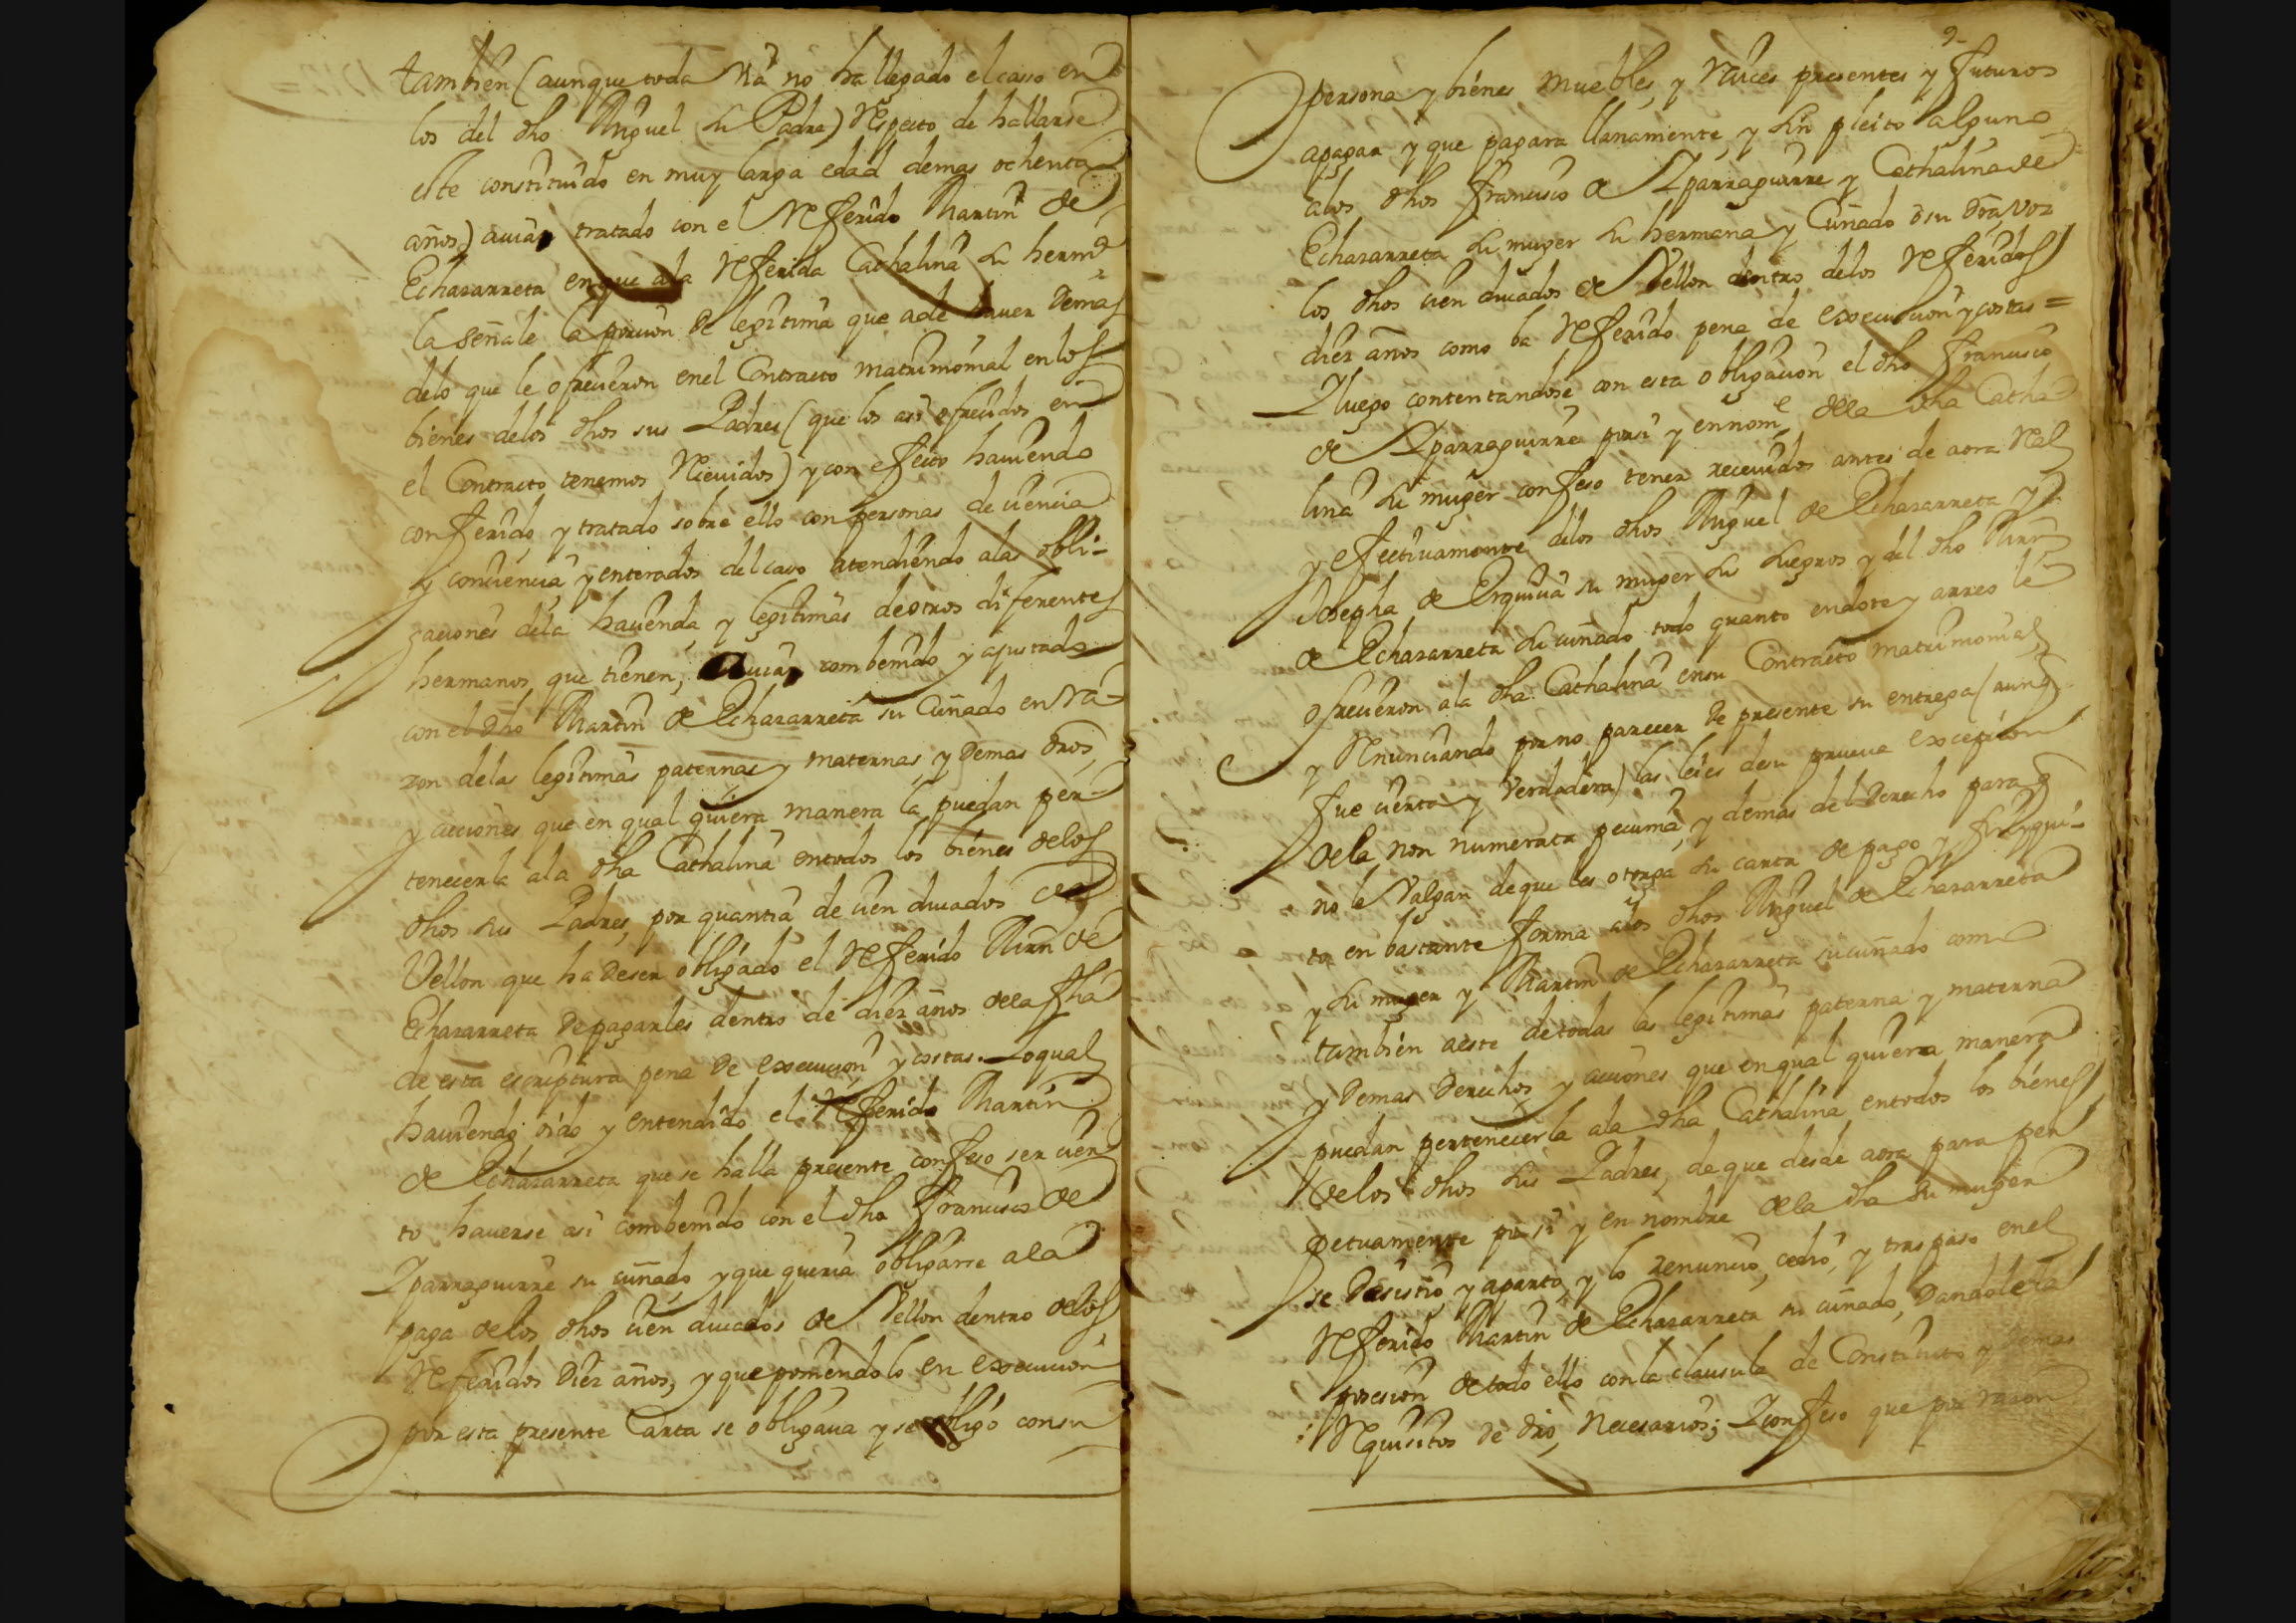 tambien (aunque toda via no ha llegado el caso en
los del dho Miguel su Padre) respecto de hallarse
este constituido en muy larga edad demas ochenta
años) auian tratado con el referido Martin de
Echazarreta en que ala referida Cathalina su herm.ª
la señale la porcion de legitima que ade hauer demas
delo que le ofrecieron enel Contracto matrimonial en los
bienes delos dhos sus Padres (que los asi ofrecidos en
el Contracto tenemos Receuidos) y con efecto hauiendo
conferido, y tratado sobre ello con personas de ciencia
y conciencia, y enterados del caso atendiendo alas obli-
gaciones dela hacienda, y legitimas de otros diferentes
hermanos que tienen, auian combenido y ajustado
con el dho Martin de Echazarreta su Cuñado en ra-
zon delas legitimas paternas y maternas, y demas dros,
y acciones que en qual quiera manera la puedan per-
tenecerla ala dha Cathalina en todos los bienes delos
dhos sus Padres, por quantia de cien ducados de
Vellon que ha de ser obligado el referido Mrn de
Echazarreta de pagarles dentro de diez años dela fha
de esta escriptura pena de execucion, y costas. Lo qual
hauiendo oido y entendido el referido Martin
de Echazarreta que se halla presente confeso ser cier
to hauerse asi combenido con el dho Francisco de
Yparraguirre su cuñado, y que queria obligarse ala
paga delos dhos cien ducados de Vellon dentro delos
referidos diez años, y que poniendolo en execucion
por esta presente Carta se obligaua y se obligó con su
9
persona y bienes muebles, y raices presentes y futuros
apagar y que pagara llanamente, y sin pleito alguno
alos dhos Francisco de Yparraguirre y Cathalina de
Echazarreta su muger su hermana y Cuñado o su dra voz
los dhos cien ducados de Vellon dentro delos referidos
diez años como ba referido pena de execucion y costas =
Y luego contentandose con esta obligacion el dho Francisco
de Yparraguirre por si y en nom.e dela dha Catha
lina su muger confeso tener receuidos antes de aora real
y efectiuamente delos dhos Miguel de Echazarreta y
Josepha de Erquicia su muger sus suegros y del dho Mrn
de Echazarreta su cuñado todo quanto en dote y arreo le
ofrecieron ala dha Cathalina en su Contracto matrimonial,
y renunciando por no parecer de presente su entrega (aunq
fue cierta y verdadera) las leies desu prueua excepcion
dela non numerata pecunia, y demas del derecho para q
no le valgan de que les otorga su carta de pago y finyqui-
to en bastante forma alos dhos Miguel de Echazarreta
y su muger y Martin de Echazarreta su cuñado como
tambien aeste de todas las legitimas paterna y materna
y demas derechos y acciones que en qual quiera manera
puedan pertenecerla ala dha Cathalina en todos los bienes
delos dhos sus Padres, de que desde aora para per
petuamente por si y en nombre dela dha su muger
se desistio, y aparto, y lo renuncio, cedio, y traspaso enel
referido Martin de Echazarreta su cuñado, dandole la
posesion de todo ello con la clausula de Constituto y demas
Requisitos de dro, necesarios; Y confeso que por razon